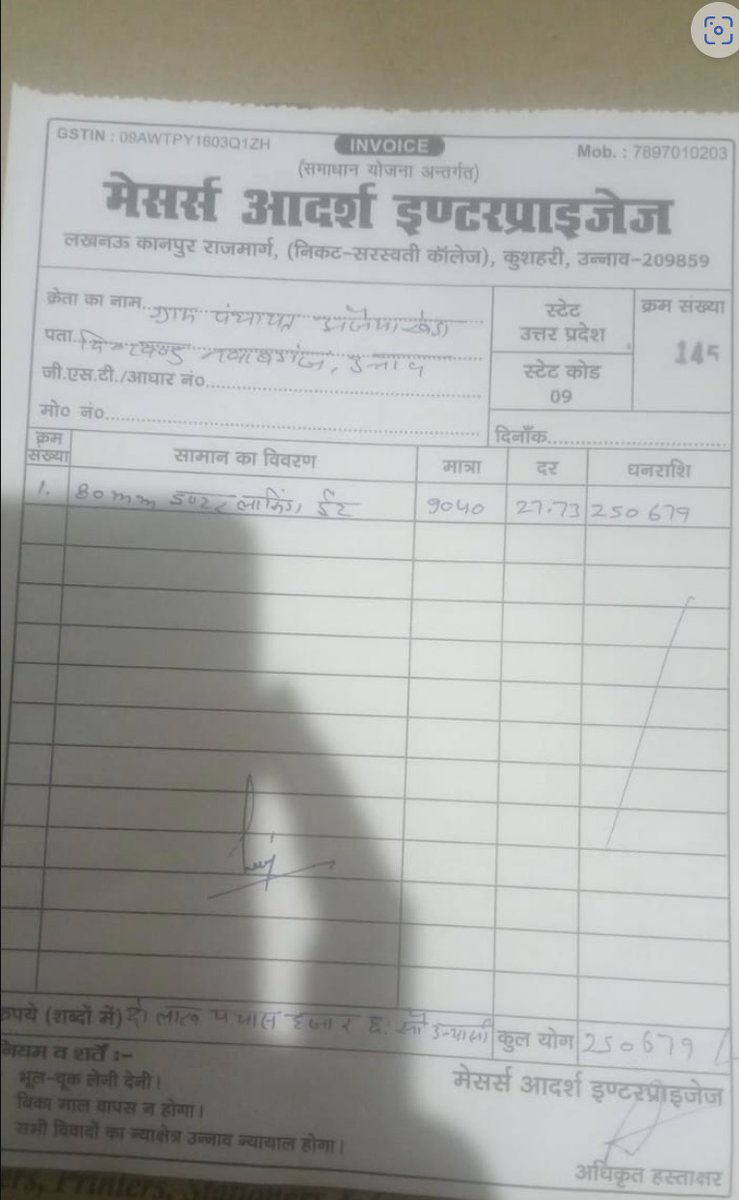 GSTIN : 09AWTPY1603Q1ZH
INVOICE
Mob. : 7897010203
(समाधान योजना अन्तर्गत)
मेसर्स आदर्श इण्टरप्राइजेज
लखनऊ कानपुर राजमार्ग, (निकट-सरस्वती कॉलेज), कुशहरी, उन्नाव-209859
क्रेता का नाम ग्राम पंचायत
पता. नवाबगंज, उन्नाव
जी.एस.टी./आधार नं०
मो० नं०
स्टेट
उत्तर प्रदेश
स्टेट कोड
09
क्रम संख्या
145
दिनाँक
क्रम संख्या सामान का विवरण मात्रा दर धनराशि
1. 80mm इण्टर लाकिंग ईंट 9040 27.73 250679
रुपये (शब्दों में) दो लाख पचास हजार छः सौ उन्यासी कुल योग 250679
नियम व शर्तें :-
भूल-चूक लेनी देनी।
बिका माल वापस न होगा।
सभी विवादों का न्याक्षेत्र उन्नाव न्यायाल होगा।
मेसर्स आदर्श इण्टरप्राइजेज
अधिकृत हस्ताक्षर